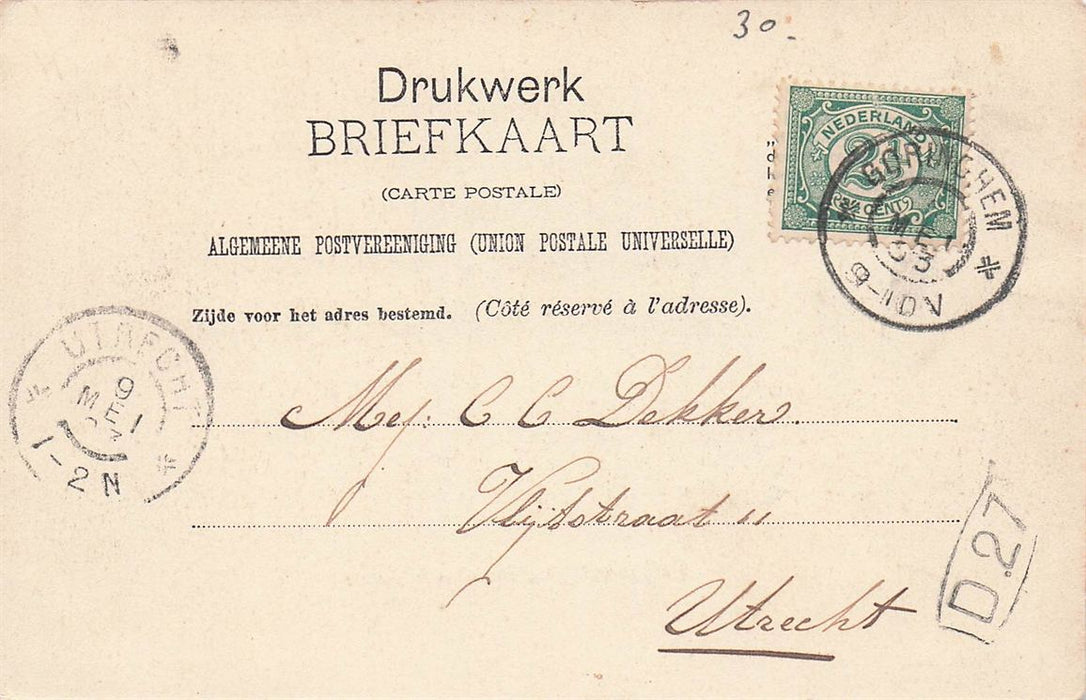 30.-
Drukwerk
BRIEFKAART
(CARTE POSTALE)
ALGEMEENE POSTVEREENIGING (UNION POSTALE UNIVERSELLE)
Zijde voor het adres bestemd. (Côté réservé à l'adresse).
NEDERLAND
2½
2½ CENT
GORINCHEM
MEI
03
9-11 DV
UTRECHT
9
MEI
1-2 N
Mej: C C Dekker.
Vlijtstraat 11
Utrecht
D.27